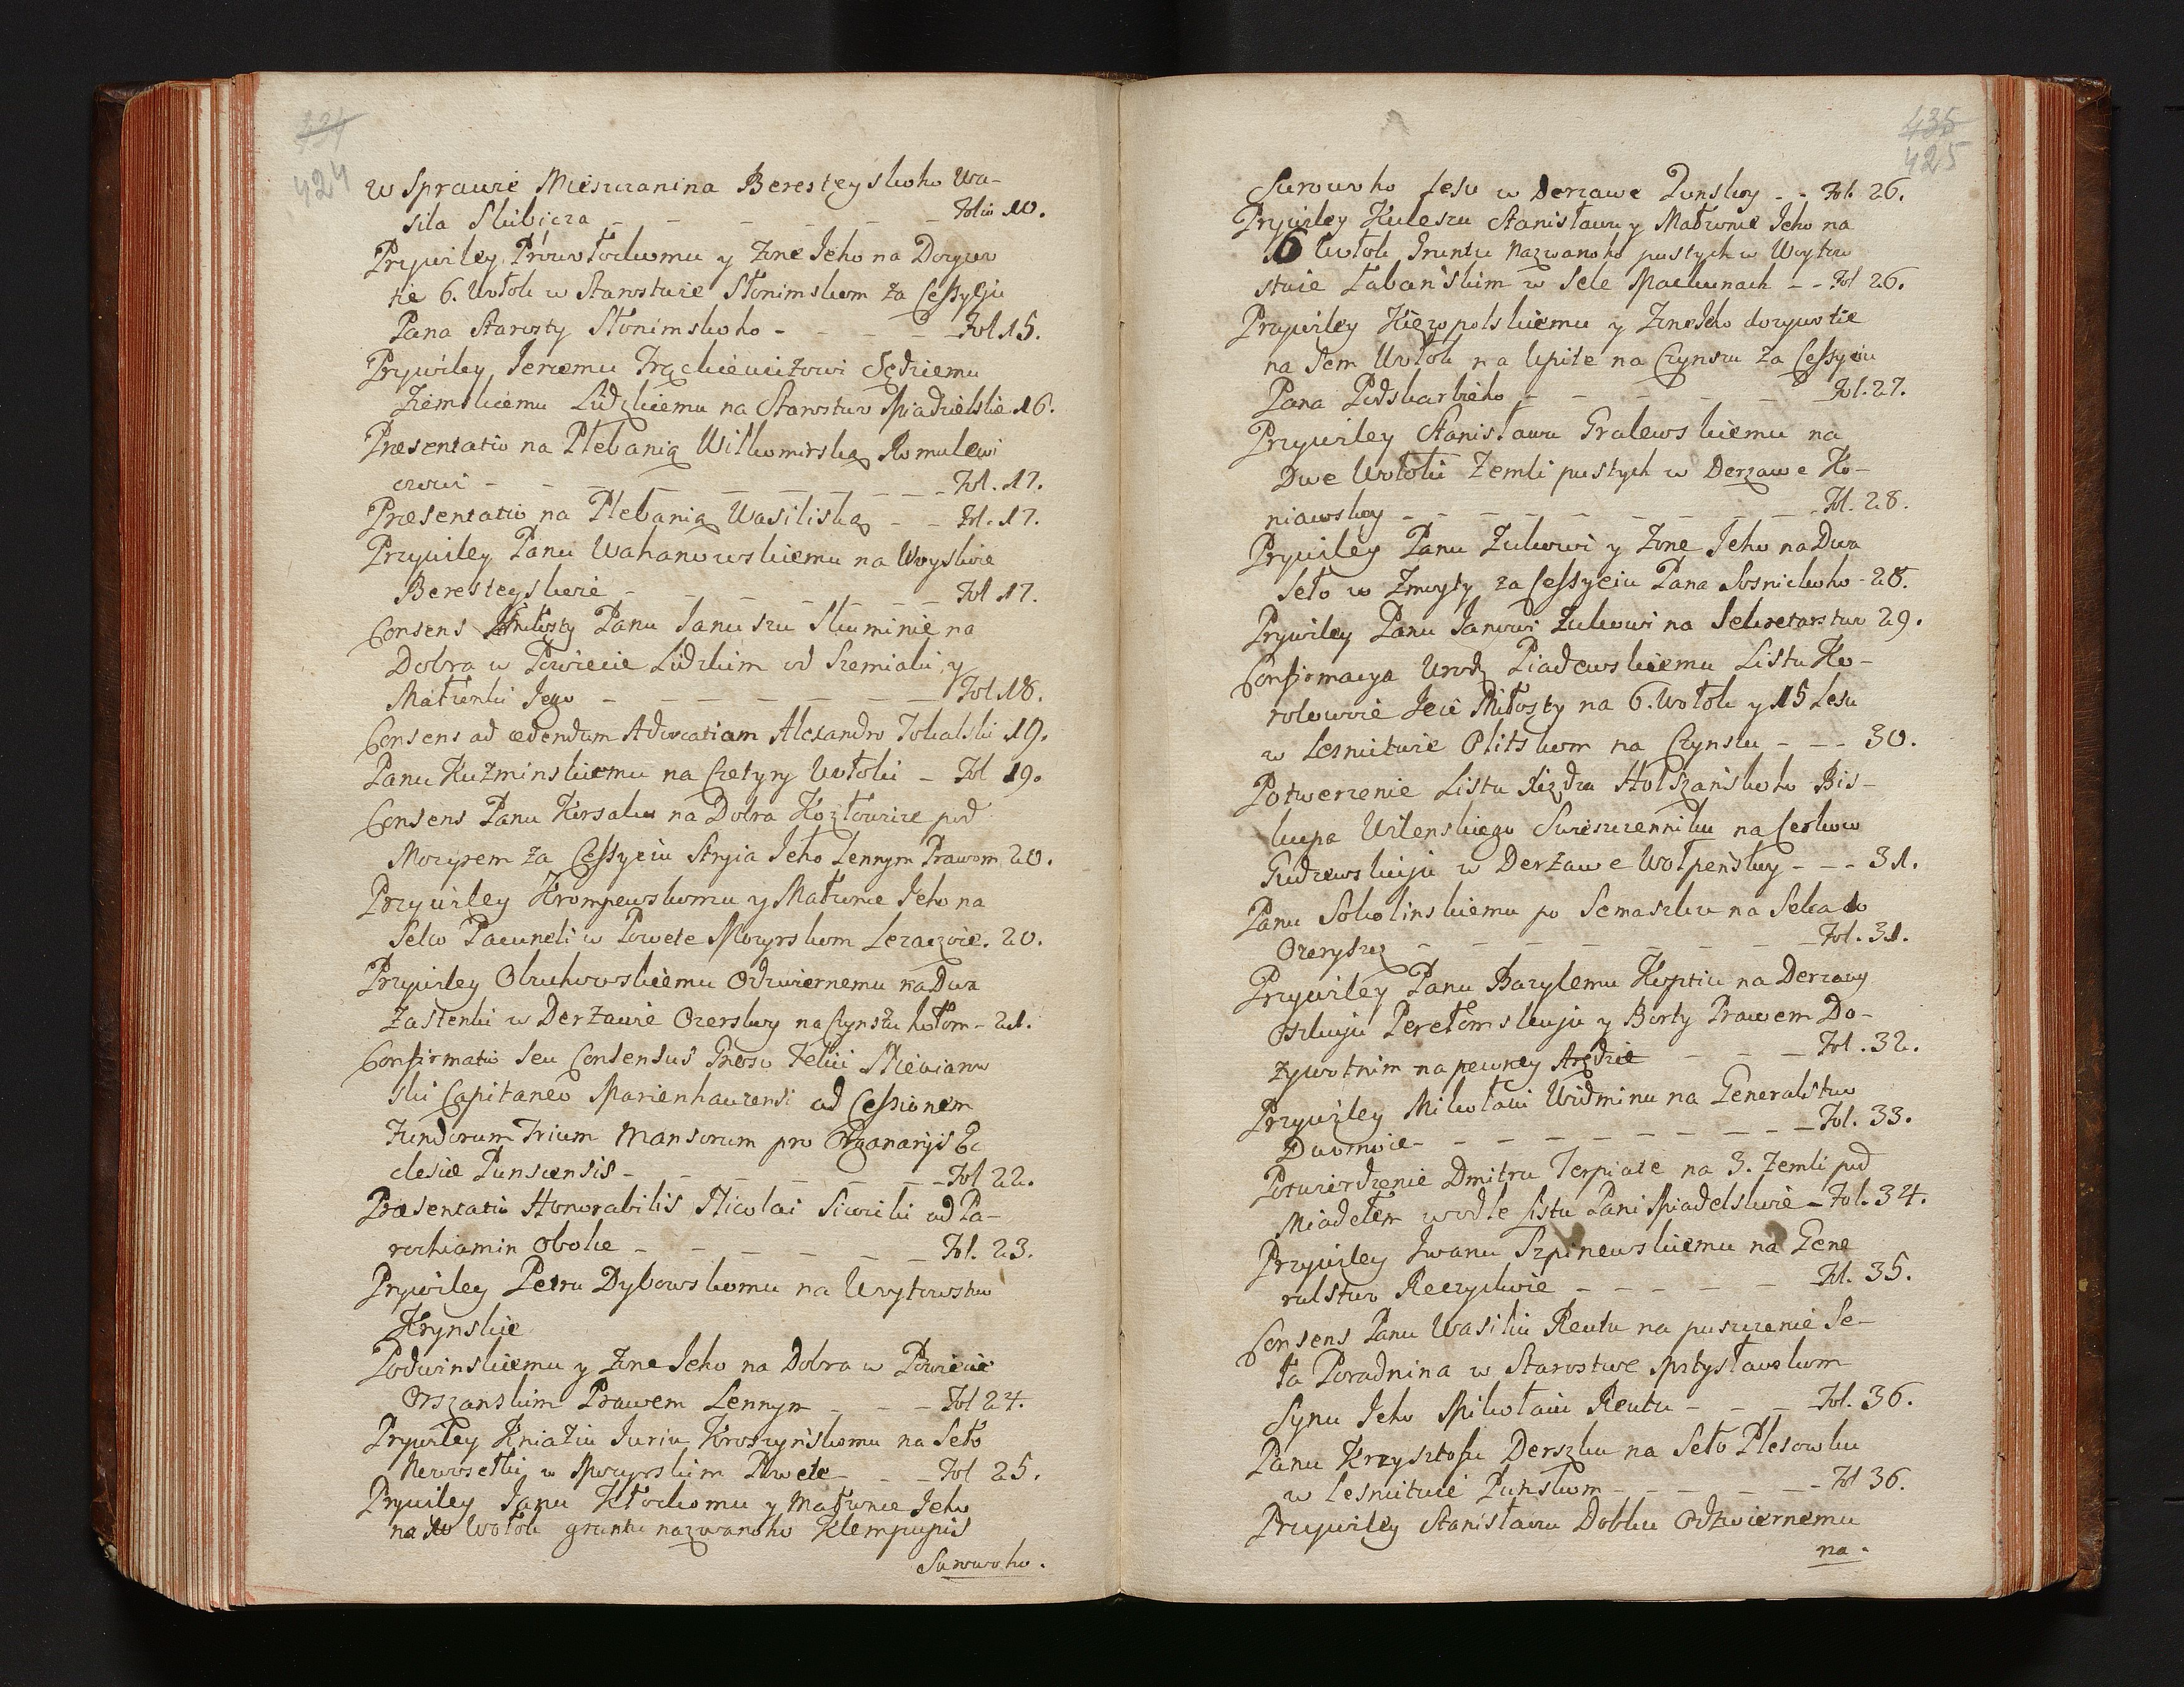 434
424
w Sprawie Miesczanina Beresteyskoho Wa-
sila Skibicza - - - - - - Folio 10.
Prywiley Prowłockomu y Żone Jeho na Dożywo
tie 6. Wołok w Starostwie Słonimskom za Cessyeju
Pana Starosty Słonimskoho - - - - Fol 15.
Prywiley Jeremu Sędziemu
Ziemskiemu Lidzkiemu na Starostwo Miadzielskie 16.
Præsentatio na Plebanią Wilkomirską Romulewi
czowi - - - - - - - - - Fol. 17.
Præsentatio na Plebanią Wasiliską - - Fol. 17.
Przywiley Panu Wahanowskiemu na Woyskie
Beresteyskoie - - - - - - - Fol 17.
Consens Panu Januszu Skuminie na
Dobra w Powiecie Lidzkim od Szemiaki y
Małżonki Jego - - - - - - Fol 18.
Consens ad cedendum Advocatiam Alexandro Tokalski 19.
Panu Kuźminskiemu na Czetyry Wołoki - Fol 19.
Consens Panu Korsaku na Dobra Kozłowicze pod
Mozyrem za Cessyeiu Stryia Jeho Lennym Prawom 20.
Przywiley Krompewskomu y Małżonce Jeho na
Selco Pacuneli w Powete Mozyrskom Leżaczoie. 20.
Przywiley Obuchowskiemu Odzwiernemu na Dwa
Zastenki w Derżawie Ozerskoy na Czynszu kotom - 21.
Confirmatio seu Consensus Gneroso Felici Niewiarow
ski Capitaneo Marienhauzensi ad Cessionem
Fundorum Trium Mansorum pro Organarijs Ec
clesiæ Punscensis - - - - - - Fol 22.
Præsentatio Honorabilis Nicolai Siwicki ad Pa-
rochiam in Obolce - - - - - - Fol. 23.
Prywiley Petru Dybowskomu na Woytowstwo
Krynskie
Podwinskiemu y Żone Jeho na Dobra w Powiecie
Orszanskim Prawem Lennym - - - Fol 24.
Prywiley Kniaziu Juriu Kroszynskomu na Seło
Nowosełki w Mozyrskim Powete - - - Fol 25.
Prywiley Janu Kłockomu y Małżonce Jeho
na 10 Wołok gruntu nazwanoho Klempupis
Surowoho.
435
425
Surowoho Lesu w Derżawe Punskoy - - Fol. 26.
Prywiley Kuleszu Stanisławu y Małżonce Jeho na
6 Wołok Gruntu Nazwanoho pustych w Woytow
stwie Labańskim w Sele Mackunach - - Fol 26.
Przywiley Kiezopolskiemu y Żone Jeho dożywotie
na Sem Wołok na Upite na Czynszu za Cessyeiu
Pana Podskarbieho - - - - - - Fol. 27.
Przywiley Stanisławu Gralewskiemu na
Dwe Wołoki Zemli pustych w Derżawe Ko-
niawskoy - - - - - - - - - Fol. 28.
Prywiley Panu Żukowi y Żone Jeho na Dwa
Seło w Żmoyty za Cessyeiu Pana Sosnickoho - 28.
Prywiley Panu Janowi Żukowi na Sekretarstwo 29.
Confirmacya Urodz Piadewskiemu Listu Ko-
rolewoie Jeie Miłosty na 6. Wołok y 15 Lesu
w Lesnictwie Olitskom na Czynszu - - - 30.
Potwerzenie Listu Xiędza Holszańskoho Bis-
kupa Wilenskiego Swieszczenniku na Cerkow
Gudzewskuju w Derżawe Wołpenskoy - - - 31.
Panu Sokolinskiemu po Semaszku na Selco do
Ozeryszcz - - - - - - - - Fol. 31.
Przywiley Panu Bazylemu Koptiu na Derżawy
Oszkuju Perełomskuju y Borty Prawem Do-
żywotnim na pewney Arędzie - - - Fol. 32.
Przywiley Mikołaiu Widminu na Generalstwo
Dwornoie - - - - - - - - - Fol. 33.
Potwierdzenie Dmitru Terpiace na 3. Zemli pod
Miadełem wodle Listu Pani Miadelskoie - Fol. 34.
Przywiley Iwanu Szpinewskiemu na Gene
ralstwo Reczyckoie - - - - - Fol. 35.
Consens Panu Wasiliu Reutu na puszczenie Se-
ła Poradnina w Starostwe Mstysławskom
Synu Jeho Mikołaiu Reutu - - - Fol. 36.
Panu Krzysztofu Derszku na Seło Plesowku
w Lesnictwie Punskom - - - - - Fol 36.
Przywiley Stanisławu Dobku Odzwiernemu
na.